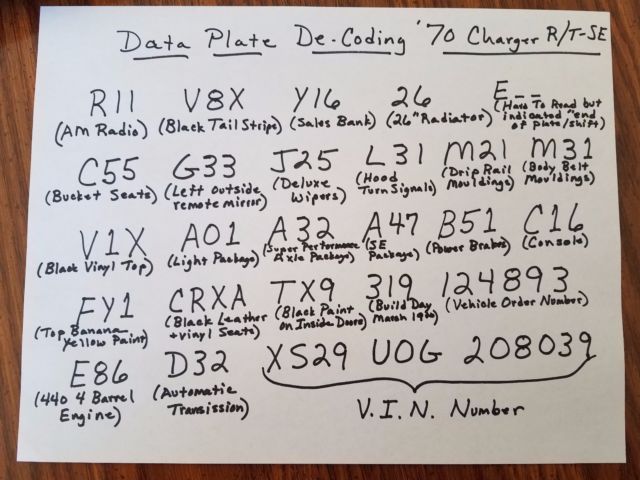 Data Plate De-Coding '70 Charger R/T-SE
R11 V8X Y16 26 E--
(AM Radio) (Black Tail Stripe) (Sales Bank) (26" Radiator) (Hard To Read but
indicated "end
of plate/shift)
C55 G33 J25 L31 M21 M31
(Bucket Seats) (Left Outside (Deluxe (Hood (Drip Rail (Body Belt
remote mirror) Wipers) Turn Signals) Mouldings) Mouldings)
V1X A01 A32 A47 B51 C16
(Black Vinyl Top) (Light Package) (Super Performance (SE (Power Brakes) (Console)
Axle Package) Package)
FY1 CRXA TX9 319 124893
(Top Banana (Black Leather (Black Paint (Build Day (Vehicle Order Number)
Yellow Paint) + Vinyl Seats) on Inside Doors) March 19th)
E86 D32 XS29 UOG 208039
(440 4 Barrel (Automatic
Engine) Transission)
V.I.N. Number